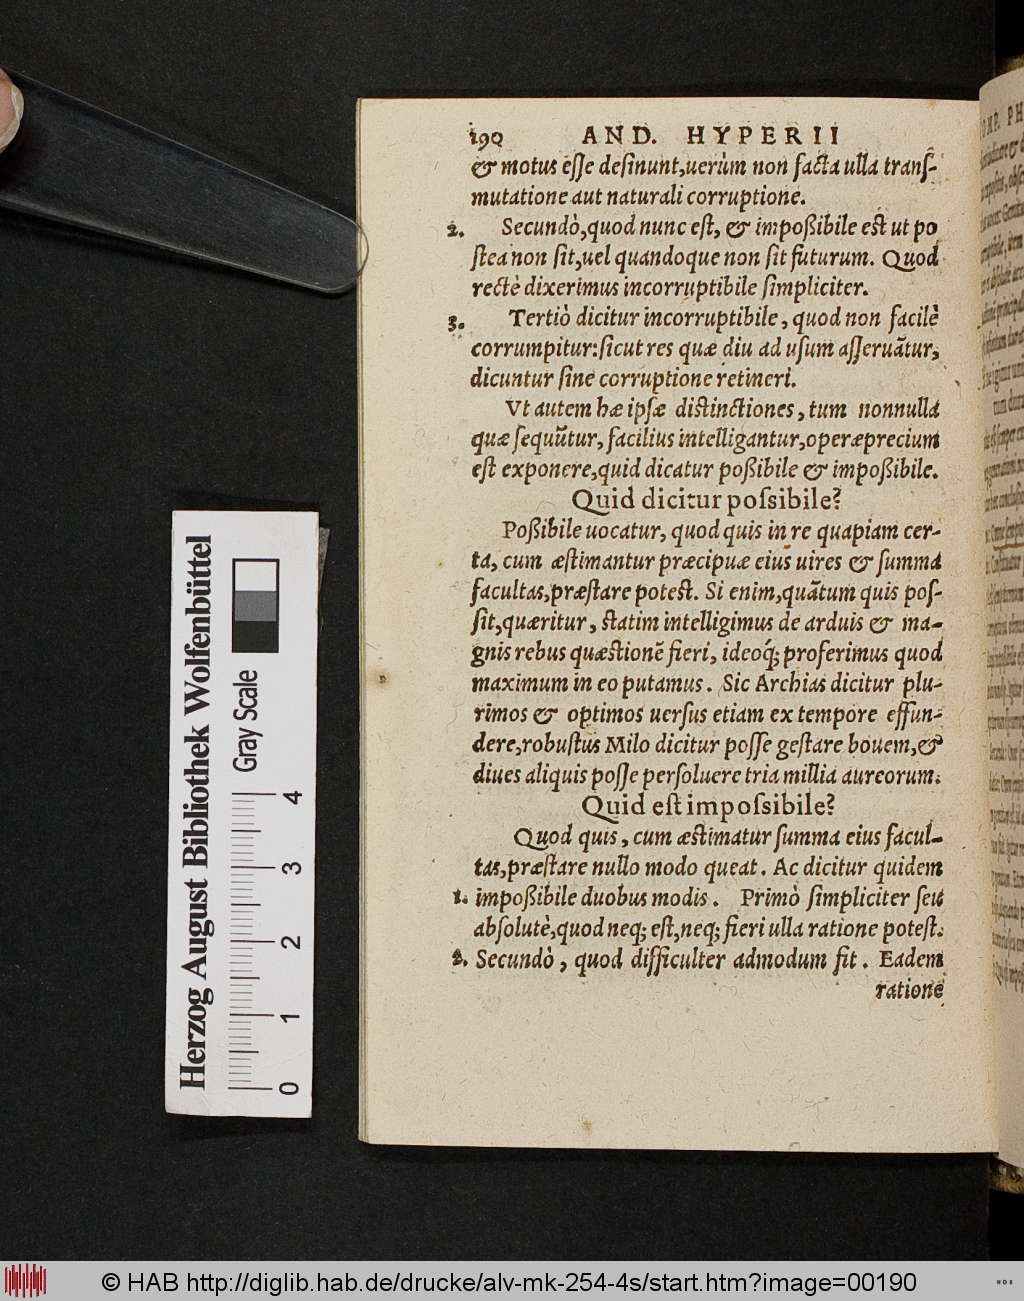 190 AND. HYPERII
& motus eſſe deſinunt,uerùm non facta ulla tranſ-
mutatione aut naturali corruptione.
2. Secundò,quod nunc eſt, & impoßibile eſt ut po
ſtea non ſit,uel quandoque non ſit futurum. Quod
rectè dixerimus incorruptibile ſimpliciter.
3. Tertiò dicitur incorruptibile, quod non facilè
corrumpitur:ſicut res quæ diu ad uſum aſſeruãtur,
dicuntur ſine corruptione retineri.
Vt autem hæ ipſæ diſtinctiones, tum nonnulla
quæ ſequũtur, facilius intelligantur,operæprecium
eſt exponere,quid dicatur poßibile & impoßibile.
Quid dicitur poſsibile?
Poßibile uocatur, quod quis in re quapiam cer-
ta, cum æſtimantur præcipuæ eius uires & ſumma
facultas,præſtare poteſt. Si enim,quãtum quis poſ-
ſit,quæritur, ſtatim intelligimus de arduis & ma-
gnis rebus quæſtionẽ fieri, ideoq́; proferimus quod
maximum in eo putamus. Sic Archias dicitur plu-
rimos & optimos uerſus etiam ex tempore effun-
dere,robuſtus Milo dicitur poſſe geſtare bouem,&
diues aliquis poſſe perſoluere tria millia aureorum.
Quid eſt impoſsibile?
Quod quis, cum æſtimatur ſumma eius facul-
tas,præſtare nullo modo queat. Ac dicitur quidem
1. impoßibile duobus modis. Primò ſimpliciter ſeu
abſolutè,quod neq; eſt,neq; fieri ulla ratione poteſt.
2. Secundò, quod difficulter admodum fit. Eadem
ratione
Herzog August Bibliothek Wolfenbüttel
Gray Scale
0 1 2 3 4
© HAB http://diglib.hab.de/drucke/alv-mk-254-4s/start.htm?image=00190